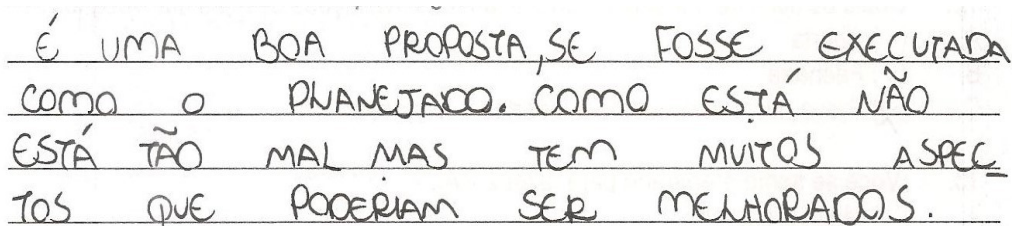 É UMA BOA PROPOSTA, SE FOSSE EXECUTADA
COMO O PLANEJADO. COMO ESTÁ NÃO
ESTÁ TÃO MAL MAS TEM MUITOS ASPEC
TOS QUE PODERIAM SER MELHORADOS.